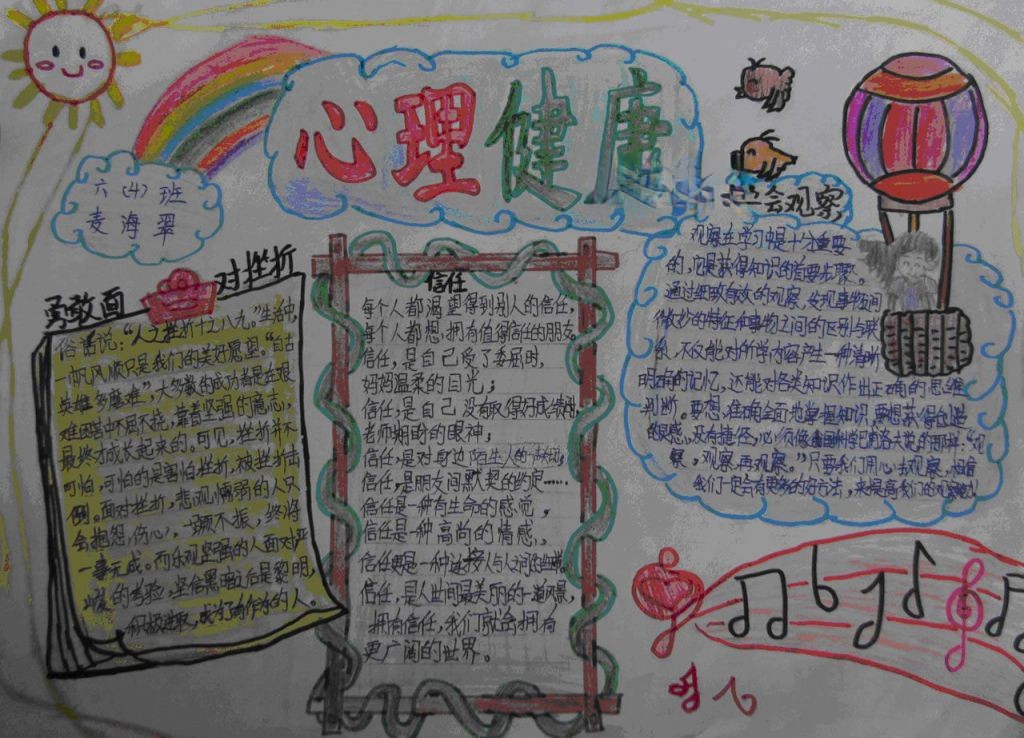 心理健康
六(4)班
麦海翠
勇敢面对挫折
俗话说：“人之挫折十之八九。”生活中，
一帆风顺只是我们的美好愿望。“自古
英雄多磨难”，大多数的成功者是在艰
难困苦中不屈不挠，靠着坚强的意志，
最终才成长起来的。可见，挫折并不
可怕，可怕的是害怕挫折，被挫折击
倒。面对挫折，悲观懦弱的人只
会抱怨，伤心，一蹶不振，终将
一事无成。而乐观坚强的人面对严
峻的考验，坚信黑暗后是黎明，
积极进取，成为有作为的人。
信任
每个人都渴望得到别人的信任，
每个人都想拥有值得信任的朋友
信任，是自己受了委屈时，
妈妈温柔的目光；
信任，是自己没有取得好成绩时，
老师期盼的眼神；
信任，是对身边陌生人的
信任，是朋友间默契的约定……
信任是一种有生命的感觉，
信任是一种高尚的情感，
信任更是一种连接人与人之间的
信任，是人世间最美丽的一道风景，
拥有信任，我们就会拥有
更广阔的世界。
学会观察
观察在学习中是十分重要
的，它是获得知识的首要步骤。
通过细致有效的观察，发现事物间
微妙的特征和事物之间的区别与联
系，不仅能对所学内容产生一种清晰
明确的记忆，还能对各类知识作出正确的思维
判断。要想准确全面地掌握知识，要想获得创造
的灵感，没有捷径，必须做
察，观察，再观察。”只要我们用心去观察，相信
我们一定会有更多的好方法，来提高我们的观察